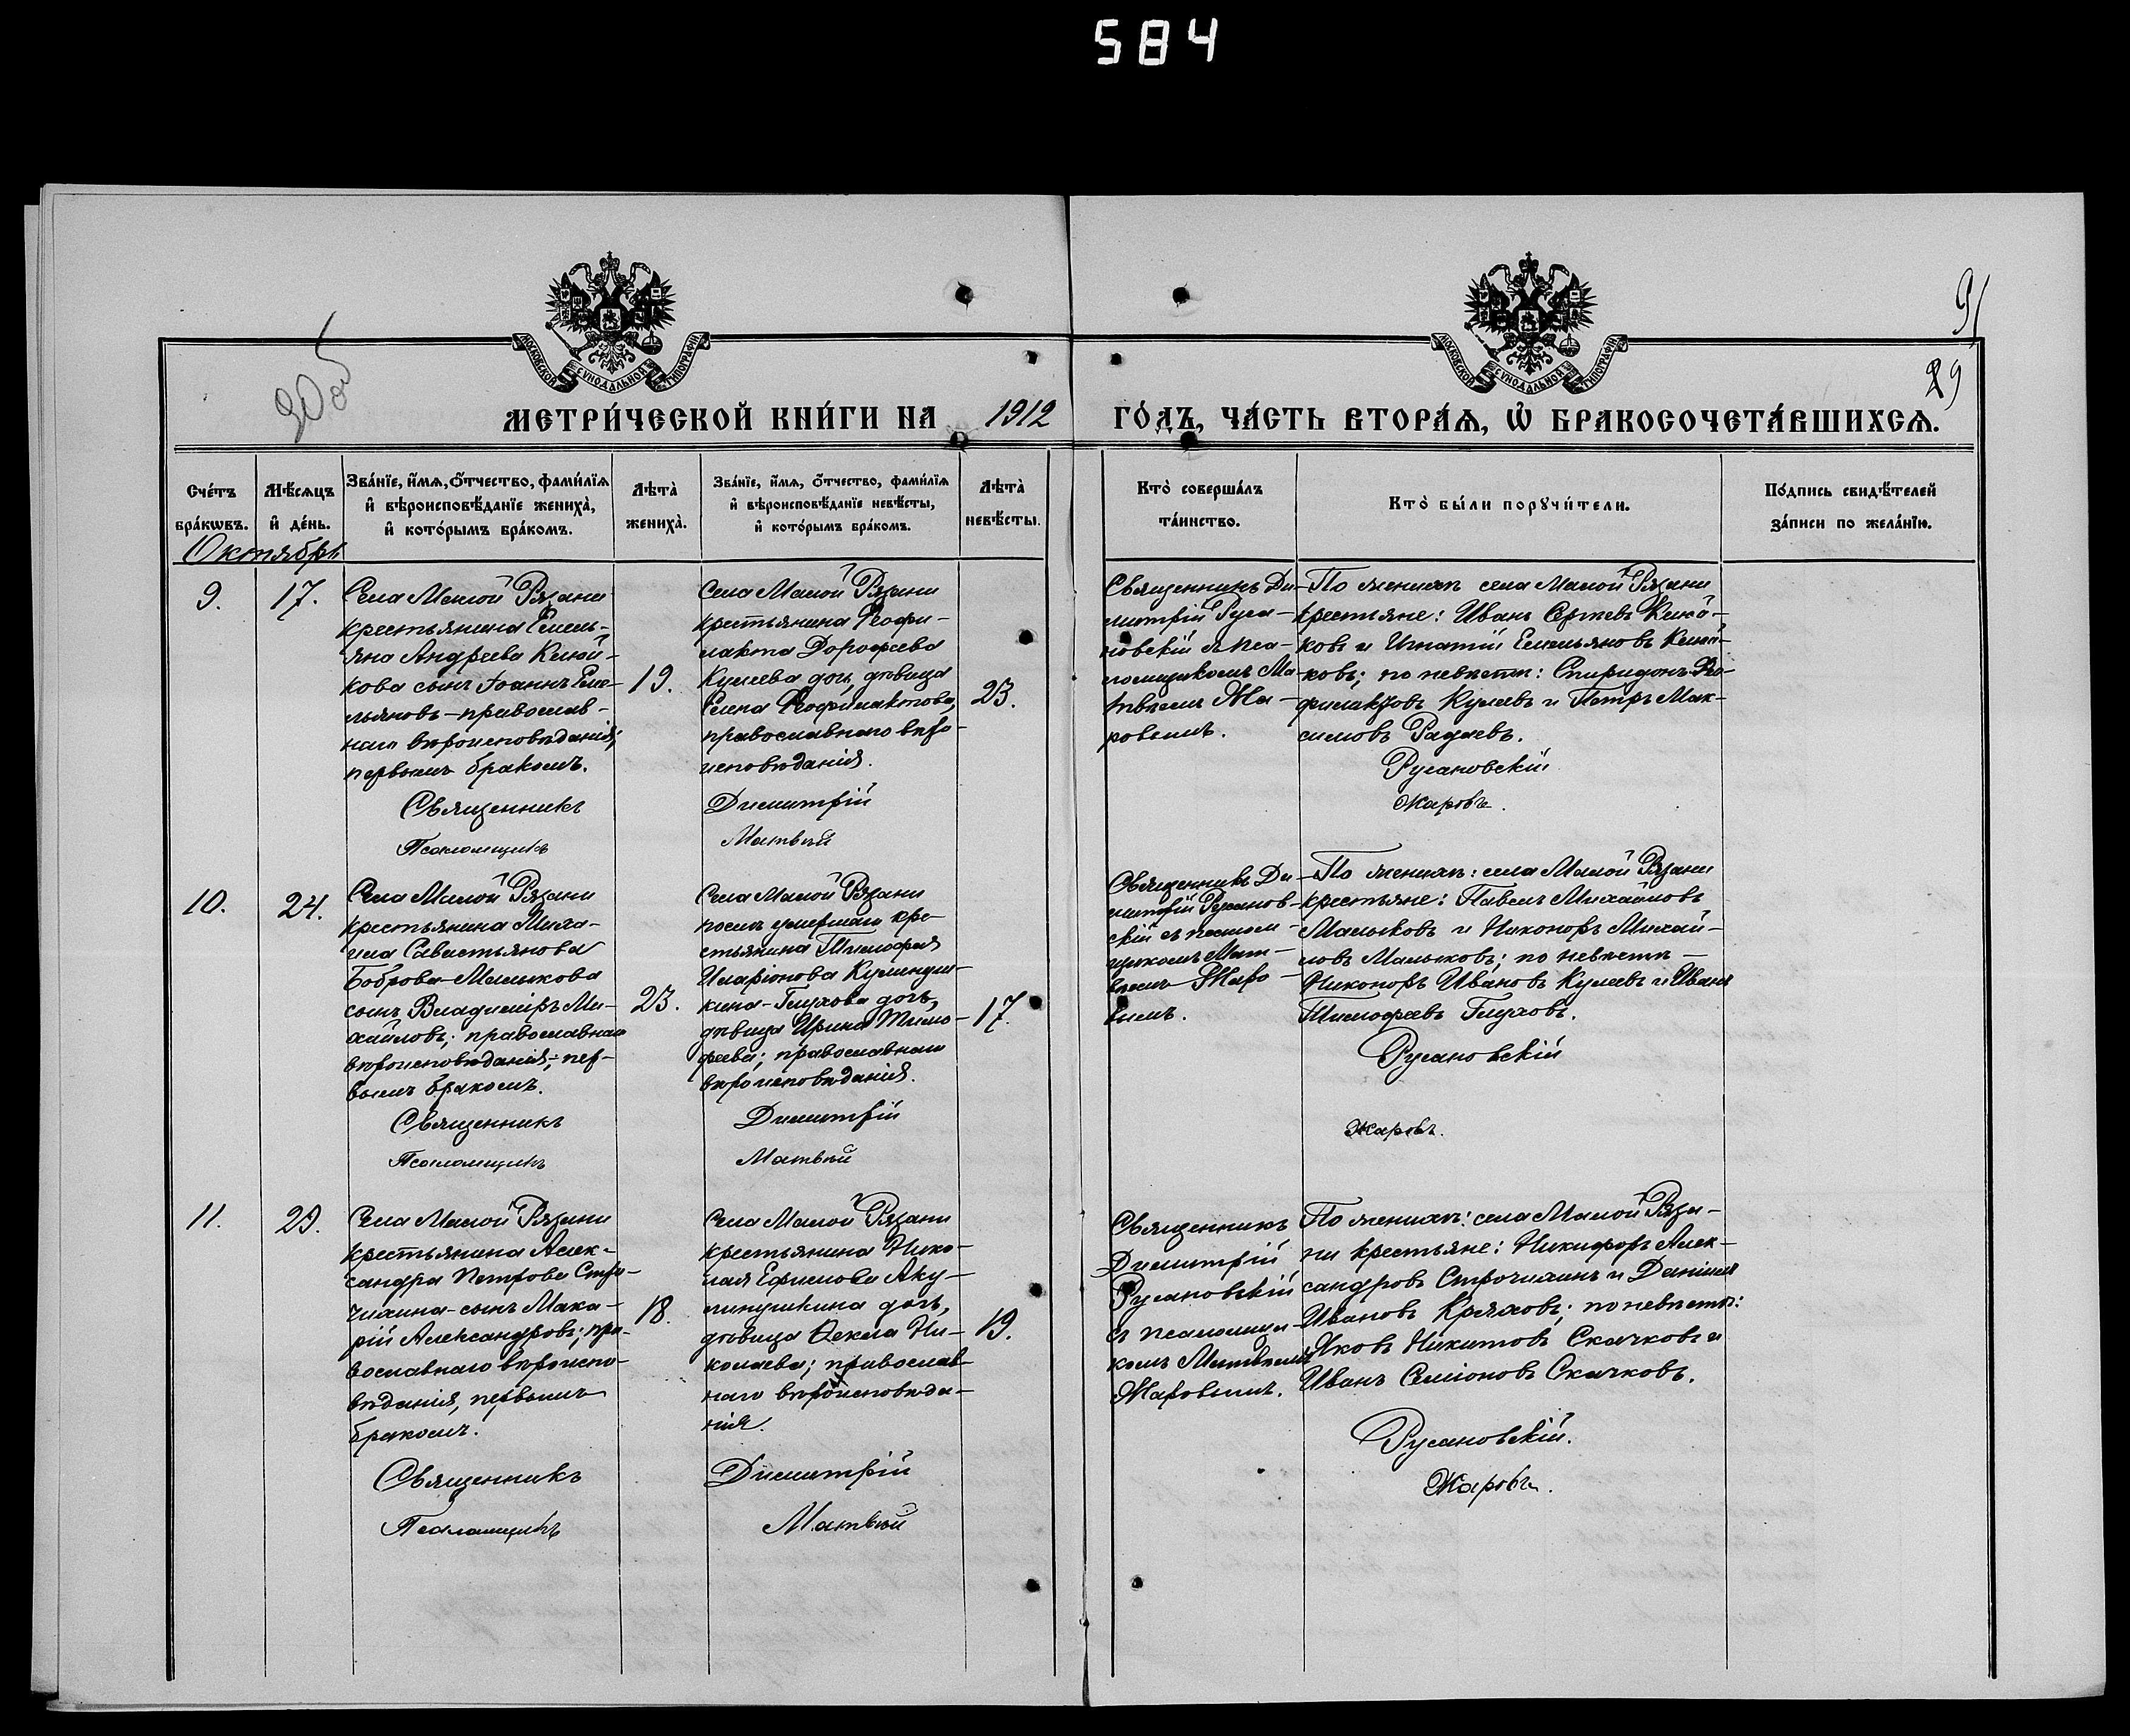 584
МОСКОВСКОЙ СѴНОДАЛЬНОЙ ТИПОГРАФІИ
МОСКОВСКОЙ СѴНОДАЛЬНОЙ ТИПОГРАФІИ
91
29
МЕТРИ́ЧЕСКОЙ КНИ́ГИ НА 1912 ГО́ДЪ, ЧА́СТЬ ВТОРА́Ѧ, Ѡ҆ БРАКОСОЧЕТА́ВШИХСѦ.
Сче́тъ бра́кѡвъ.
Мѣ́сѧцъ и҆ де́нь.
Зва́нїе, и҆́мѧ, ѻ҆́тчество, фами́лїѧ
и҆ вѣроисповѣ́данїе жениха̀,
и҆ кото́рымъ бра́комъ.
Лѣта̀ жениха̀.
Зва́нїе, и҆́мѧ, ѻ҆́тчество, фами́лїѧ
и҆ вѣроисповѣ́данїе невѣ́сты,
и҆ кото́рымъ бра́комъ.
Лѣта̀ невѣ́сты.
Кто̀ соверша́лъ
та́инство.
Кто̀ бы́ли порꙋчи́тели.
По́дпись свидѣ́телей
за́писи по жела́нїю.
Октябрь
9.
17.
Села Малой Рязани
крестьянина Емель-
яна Андреева Клюй-
кова сынъ Іоаннъ Еме-
льяновъ - православ-
наго вѣроисповѣданія;
первымъ бракомъ.
19.
Села Малой Рязани
крестьянина Ѳеофи-
лакта Дорофеева
Кулеева дочь, дѣвица
Елена Ѳеофилактова,
православнаго вѣро-
исповѣданія.
23.
Священникъ Ди-
митрій Руса-
новскій съ пса-
ломщикомъ Ма-
твѣемъ Жа-
ровымъ.
По женихѣ села Малой Рязани
крестьяне: Иванъ Сергѣевъ Клюй-
ковъ и Игнатій Емельяновъ Клюй-
ковъ; по невѣстѣ: Спиридонъ Ѳео-
филактовъ Кулеевъ и Петръ Мак-
симовъ Радаевъ.
Священникъ Димитрій Русановскій
Псаломщикъ Матвѣй Жаровъ.
10.
24.
Села Малой Рязани
крестьянина Миха-
ила Савастьянова
Боброва-Малыкова
сынъ Владиміръ Ми-
хайловъ; православнаго
вѣроисповѣданія; пер-
вымъ бракомъ.
23.
Села Малой Рязани
послѣ умершаго кре-
стьянина Тимофея
Иларіонова
Глухова дочь,
дѣвица Ирина Тимо-
феева; православнаго
вѣроисповѣданія.
17.
Священникъ Ди-
митрій Русанов-
скій съ псалом-
щикомъ Мат-
вѣемъ Жаро-
вымъ.
По женихѣ: села Малой Рязани
крестьяне: Павелъ Михайловъ
Малыковъ и Никоноръ Михай-
ловъ Малыковъ; по невѣстѣ -
Никоноръ Ивановъ Кулеевъ и Иванъ
Тимофеевъ Глуховъ.
Священникъ Димитрій Русановскій
Псаломщикъ Матвѣй Жаровъ.
11.
29.
Села Малой Рязани
крестьянина Алек-
сандра Петрова Стро-
чилина - сынъ Мака-
рій Александровъ; пра-
вославнаго вѣроиспо-
вѣданія, первымъ
бракомъ.
18.
Села Малой Рязани
крестьянина Нико-
лая Ефимова Аку-
линушкина дочь,
дѣвица Ѳекла Ни-
колаева; православ-
наго вѣроисповѣда-
нія.
19.
Священникъ
Димитрій
Русановскій
съ псаломщи-
комъ Матвѣемъ
Жаровымъ.
По женихѣ: села Малой Ряза-
ни крестьяне: Никифоръ Алек-
сандровъ Строчилинъ и Даніилъ
Ивановъ Кряховъ; по невѣстѣ:
Яковъ Никитовъ Скачковъ и
Иванъ Семіоновъ Скачковъ.
Священникъ Димитрій Русановскій.
Псаломщикъ Матвѣй Жаровъ.